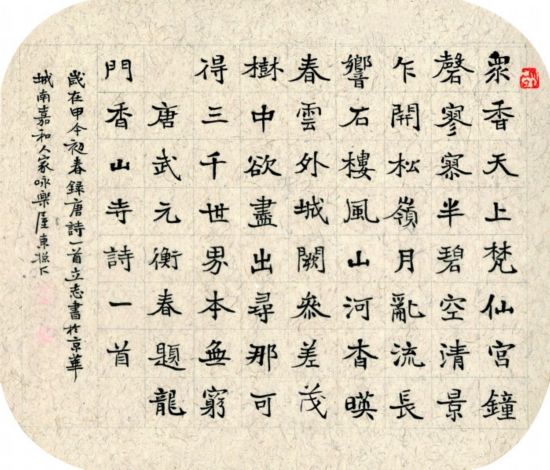 眾香天上梵仙宮鐘
磬寥寥半碧空清景
乍開松嶺月亂流長
響石樓風山河杳暎
春雲外城闕參差茂
樹中欲盡出尋那可
得三千世界本無窮
唐武元衡春題龍
門香山寺詩一首
歲在甲午初春錄唐詩一首立志書於京華
城南嘉和人家詠樂屋東牕下